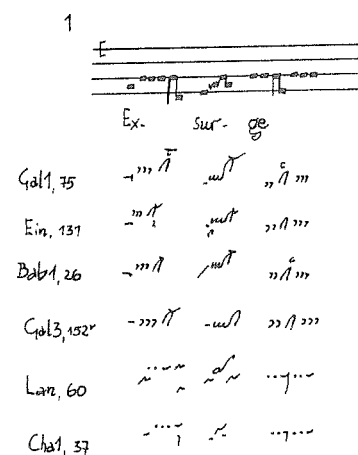 1
Ex- sur- ge
Gal1, 75
Ein, 131
Bab1, 26
Gal3, 152v
Lan, 60
Cha1, 37